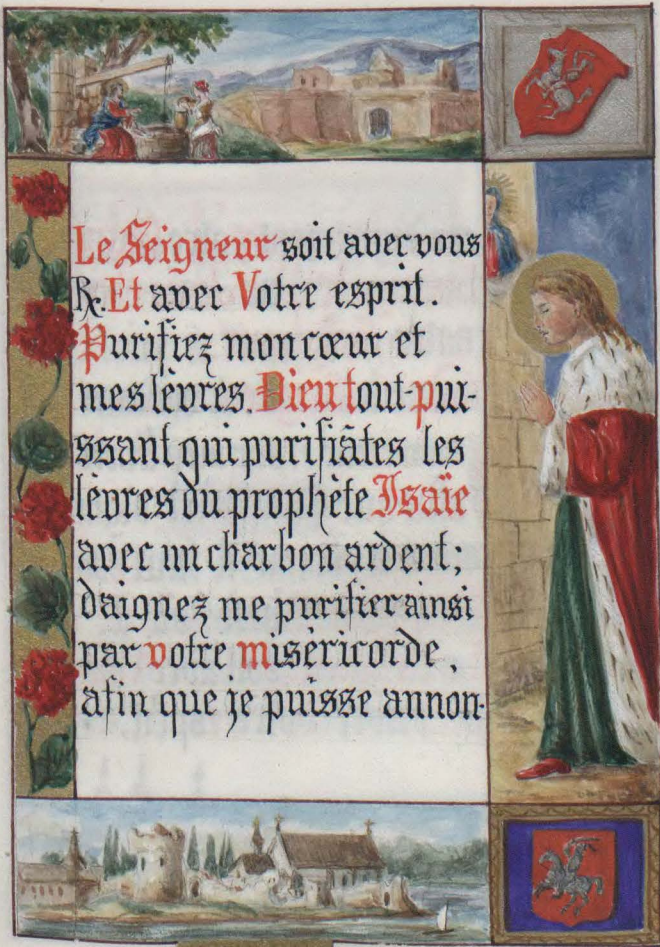 Le Seigneur soit avec vous
℟. Et avec Votre esprit.
Purifiez mon cœur et
mes lèvres. Dieu tout-pui-
ssant qui purifiâtes les
lèvres du prophète Isaïe
avec un charbon ardent;
daignez me purifier ainsi
par votre miséricorde,
afin que je puisse annon-